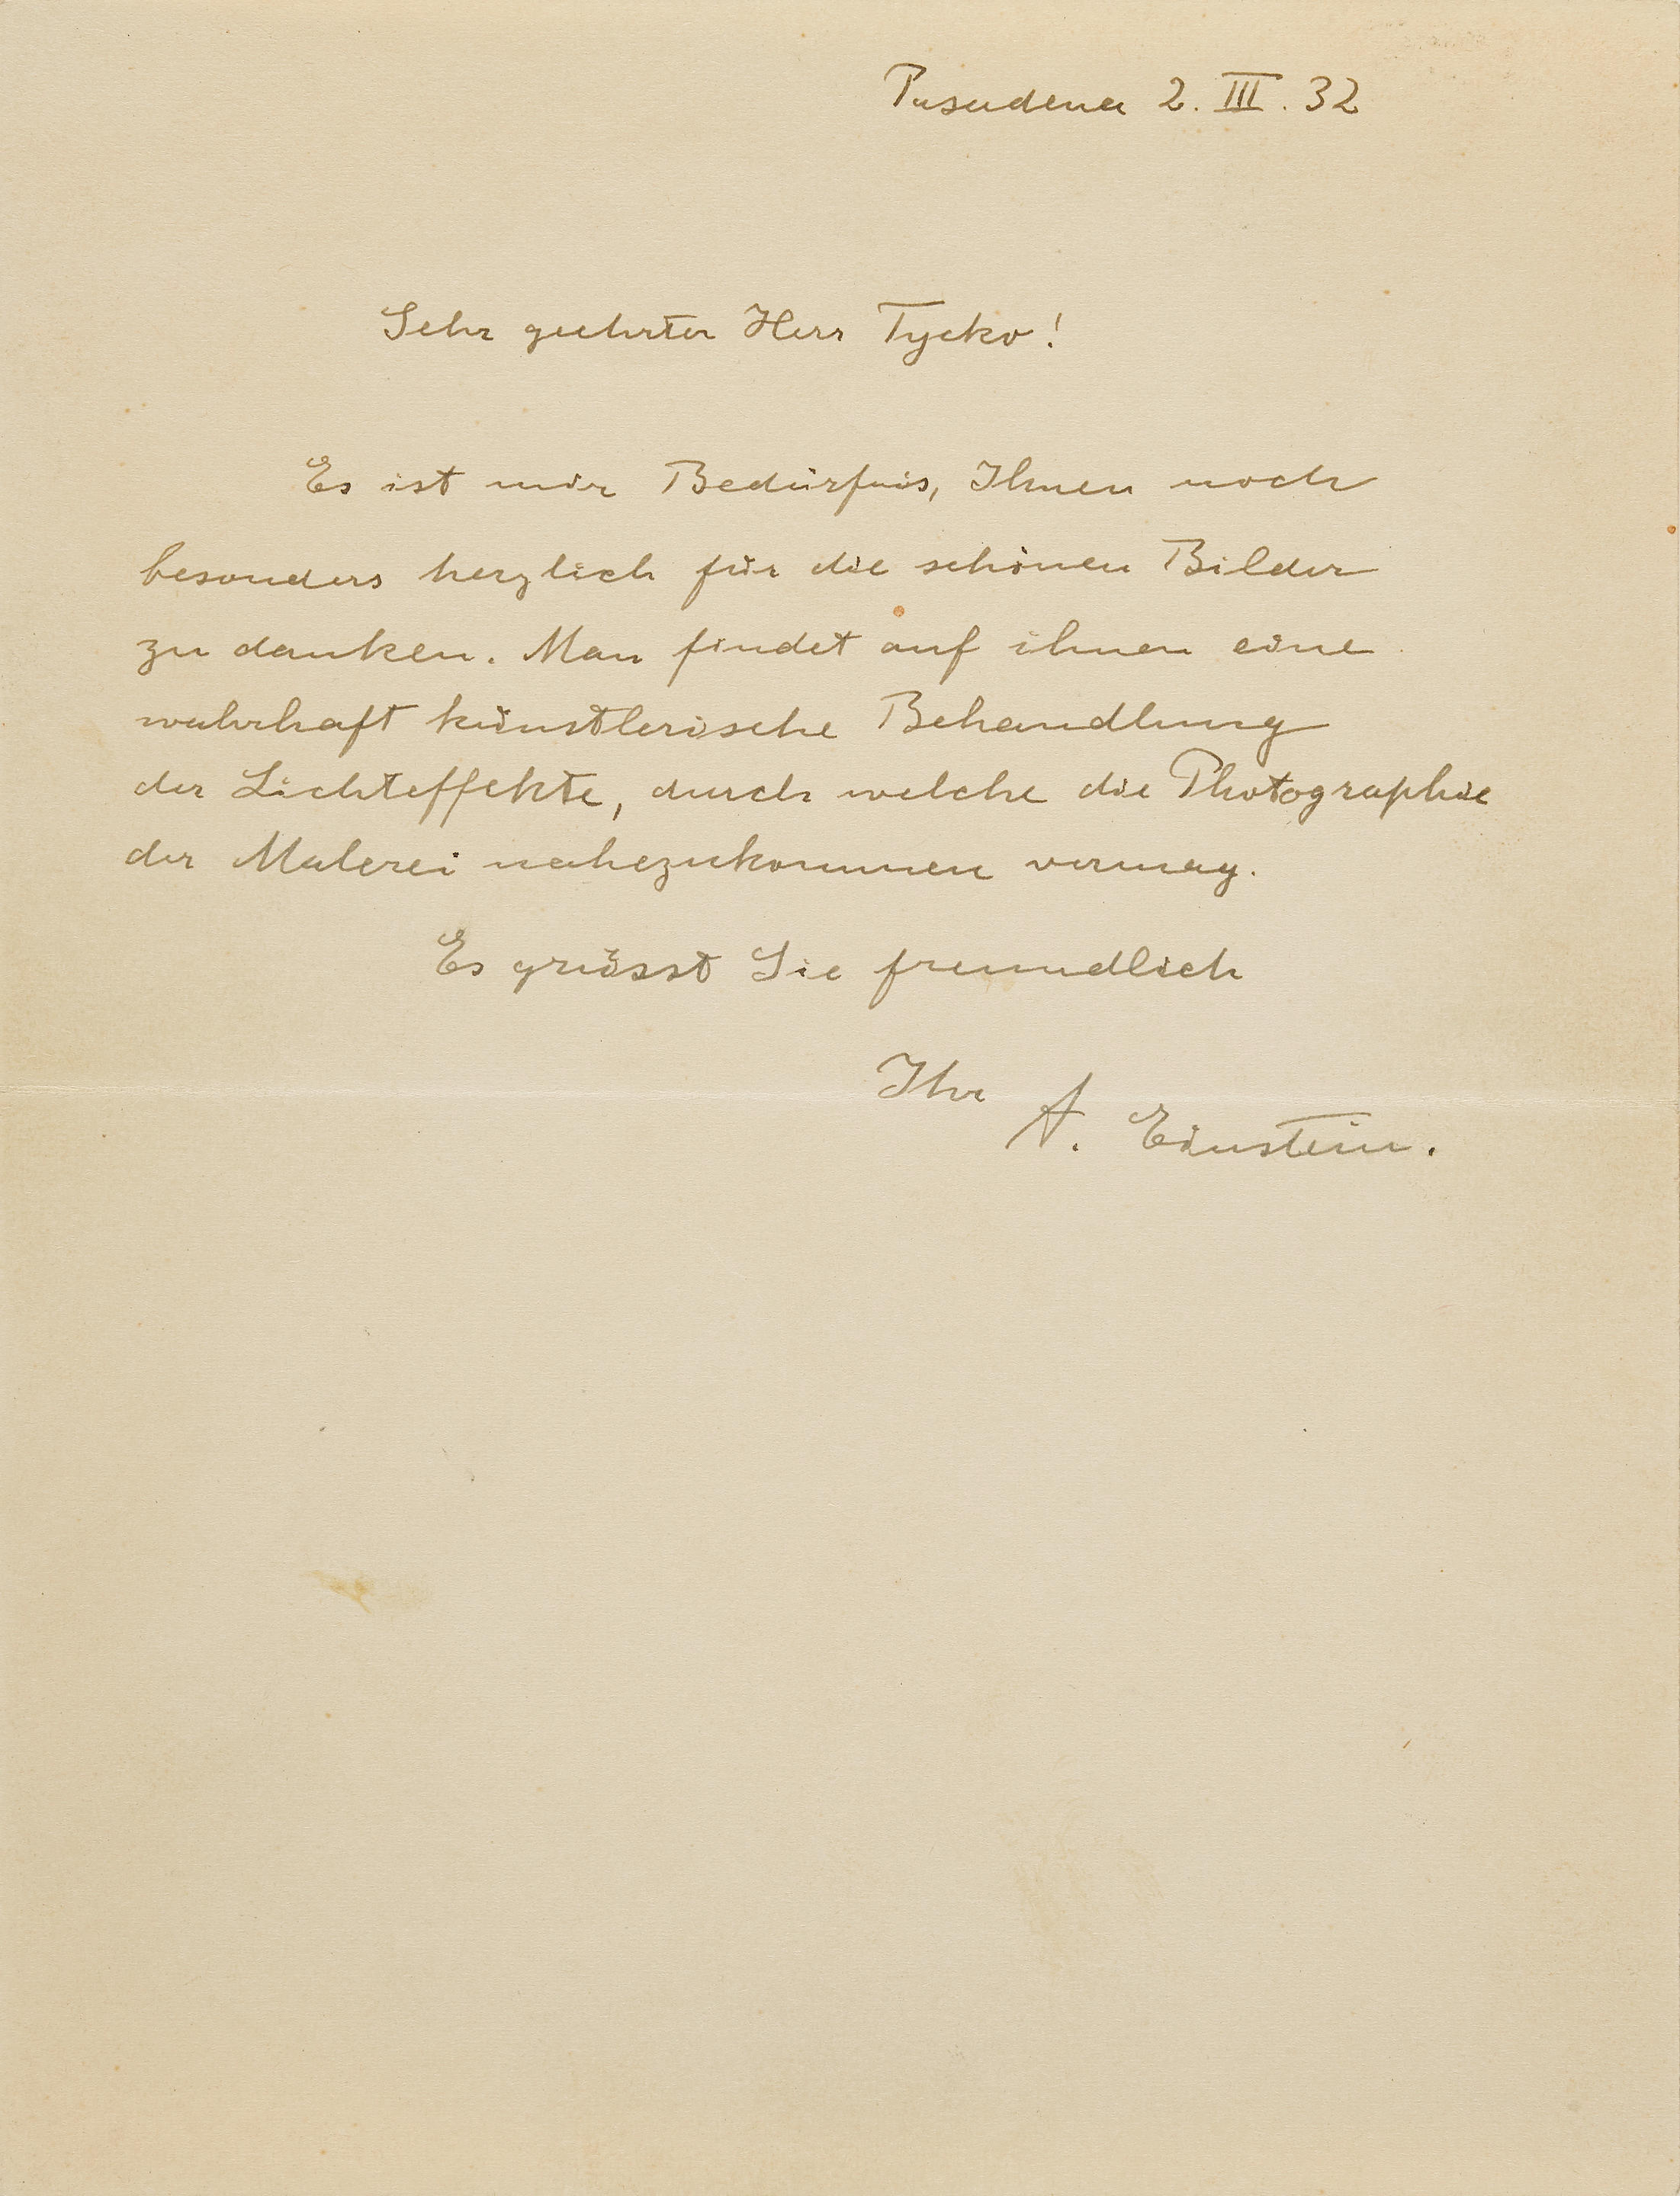 Pasadena 2. III. 32
Sehr geehrter Herr Tycko!
Es ist mir Bedürfnis, Ihnen noch
besonders herzlich für die schönen Bilder
zu danken. Man findet auf ihnen eine
wahrhaft künstlerische Behandlung
der Lichteffekte, durch welche die Photographie
der Malerei nahezukommen vermag.
Es grüsst Sie freundlich
Ihr
A. Einstein.